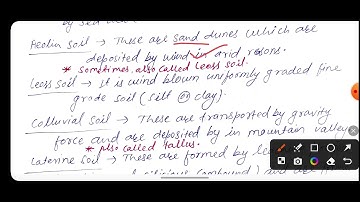 by sea
Aeolin Soil → These are sand dunes which are
deposited by wind in arid resons.
* sometimes also called Loess soil.
Loess soil → It is wind blown uniformly graded fine
grade soil (silt or clay).
Colluvial Soil → These are transported by gravity
force and are deposited by in mountain valley
* Also called Tallus.
Laterine Soil → These are formed by